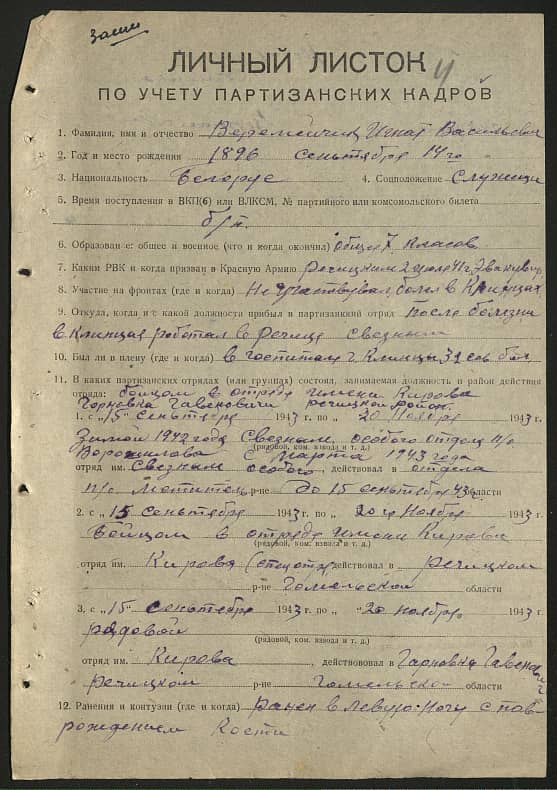 ЛИЧНЫЙ ЛИСТОК
ПО УЧЕТУ ПАРТИЗАНСКИХ КАДРОВ
1. Фамилия, имя и отчество Веремейчик Игнат Васильевич
2. Год и место рождения 1896 сеньтября 14го
3. Национальность Белорус 4. Соцположение Служищи
5. Время поступления в ВКП(б) или ВЛКСМ, № партийного или комсомольского билета
б/п.
6. Образование: общее и военное (что и когда окончил) общее 7 класов
7. Каким РВК и когда призван в Красную Армию Речицким 2 июля 41 г.
8. Участие на фронтах (где и когда) Не участвувал болел в Клинцах
9. Откуда, когда и с какой должности прибыл в партизанский отряд После болезни
в Клинцах работал в Речице связным
10. Был ли в плену (где и когда) в госпитали г. Клинцы
11. В каких партизанских отрядах (или группах) состоял, занимаемая должность и район действия
отряда: бойцом в отряде имени Кирова
Речицкий район.
1. с „15“ сеньтебре 1943 г. по „ 20 Ноября 1943
Зимой 1942 года Связным особого отдела п/о
(рядовой, ком. взвода и т. д.)
Ворошилова с марта 1943 года
отряд им. Связным особого, действовал в отдела
п/о Мститель р-не до 15 сеньтебре 43 г. области
2. с „15 сеньтебре 1943 г. по „ 20 го Ноябре 1943
Бойцом в отряде Имени Кирова
(рядовой, ком. взвода и т. д.)
отряд им. Кирова действовал в Речицком
р-не Гомельской области
3. с „15“ сеньтебре 1943 г. по „ 20 ноября 1943
рядовой
(рядовой, ком. взвода и т. д.)
отряд им. Кирова, действовал в
Речицкой р-не Гомельской области
12. Ранения и контузии (где и когда) Ранен в левую ногу с пов-
рождением кости